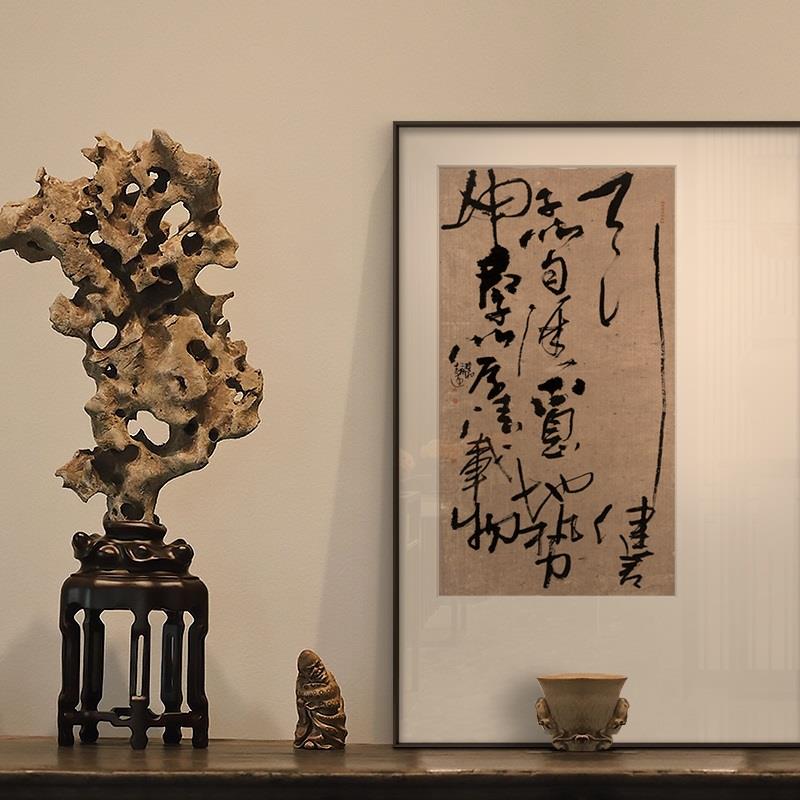 天行健君
子以自強不息地勢
坤君子以厚德載物